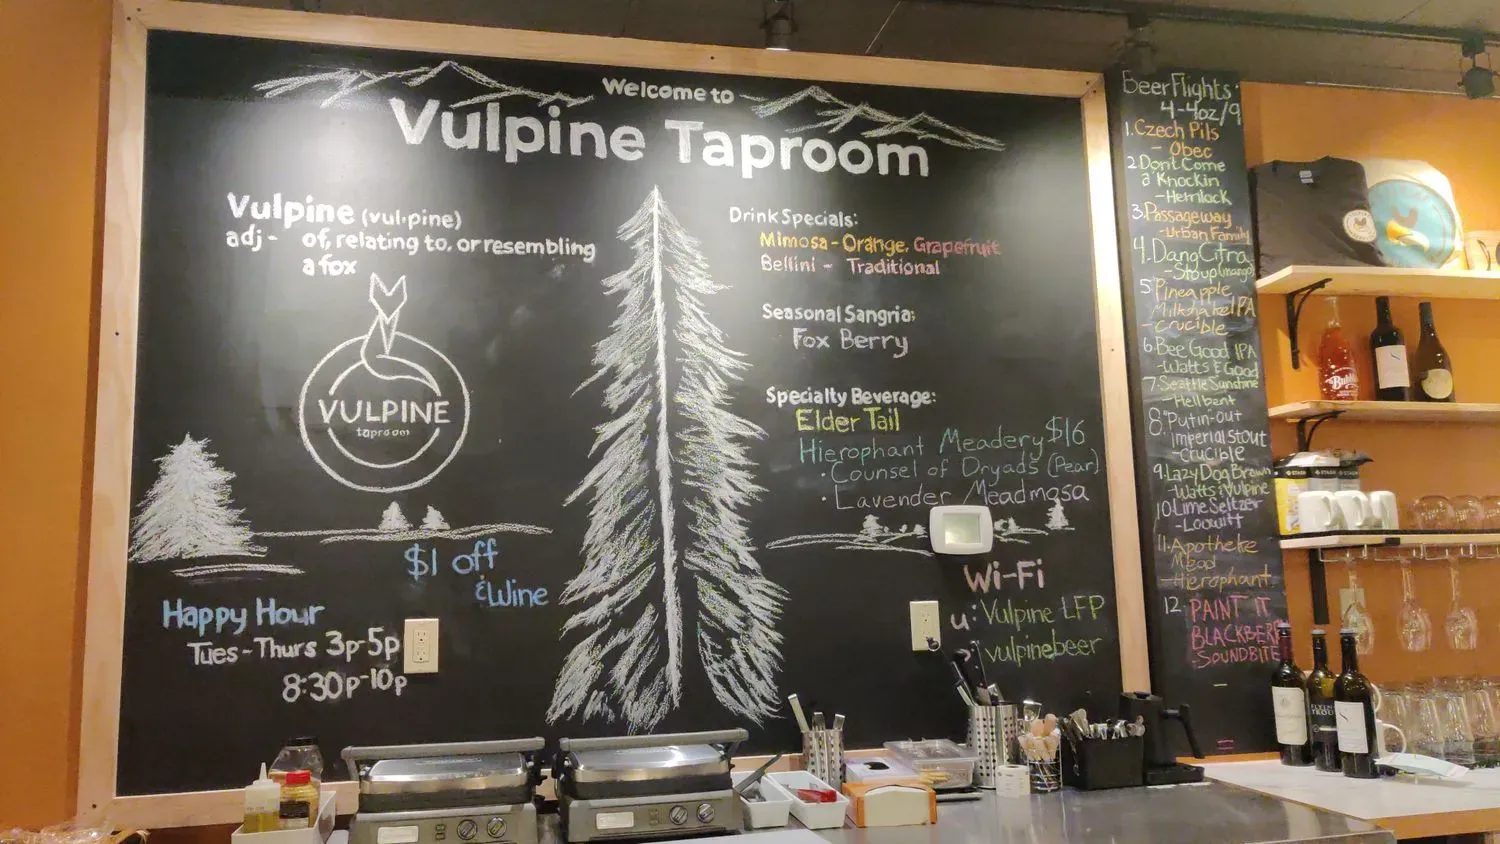 Welcome to
Vulpine Taproom
Vulpine (vul·pine)
adj - of, relating to, or resembling
a fox
VULPINE
taproom
$1 off
& Wine
Happy Hour
Tues - Thurs 3p-5p
8:30p-10p
Drink Specials:
Mimosa - Orange, Grapefruit
Bellini - Traditional
Seasonal Sangria:
Fox Berry
Specialty Beverage:
Elder Tail
Hierophant Meadery $16
· Counsel of Dryads (Pear)
· Lavender Meadmosa
Wi-Fi
u: Vulpine LFP
vulpinebeer
Beer Flights:
4-4oz/9
1. Czech Pils
- Obec
2 Dont Come
a Knockin
- Hemlock
3. Passageway
- Urban Family
4. Dang Citra
- Stoup (mango)
5 Pineapple
Milkshake IPA
- Crucible
6 Bee Good IPA
- Watts & Good
7. Seattle Sunshine
- Hellbent
8. Putin-out
Imperial Stout
- Crucible
9. Lazy Dog Brown
- Watts & Vulpine
10. Lime Seltzer
- Loowitt
11. Apotheke
Mead
- Hierophant
12 PAINT IT
BLACKBERR
- SOUNDBITE